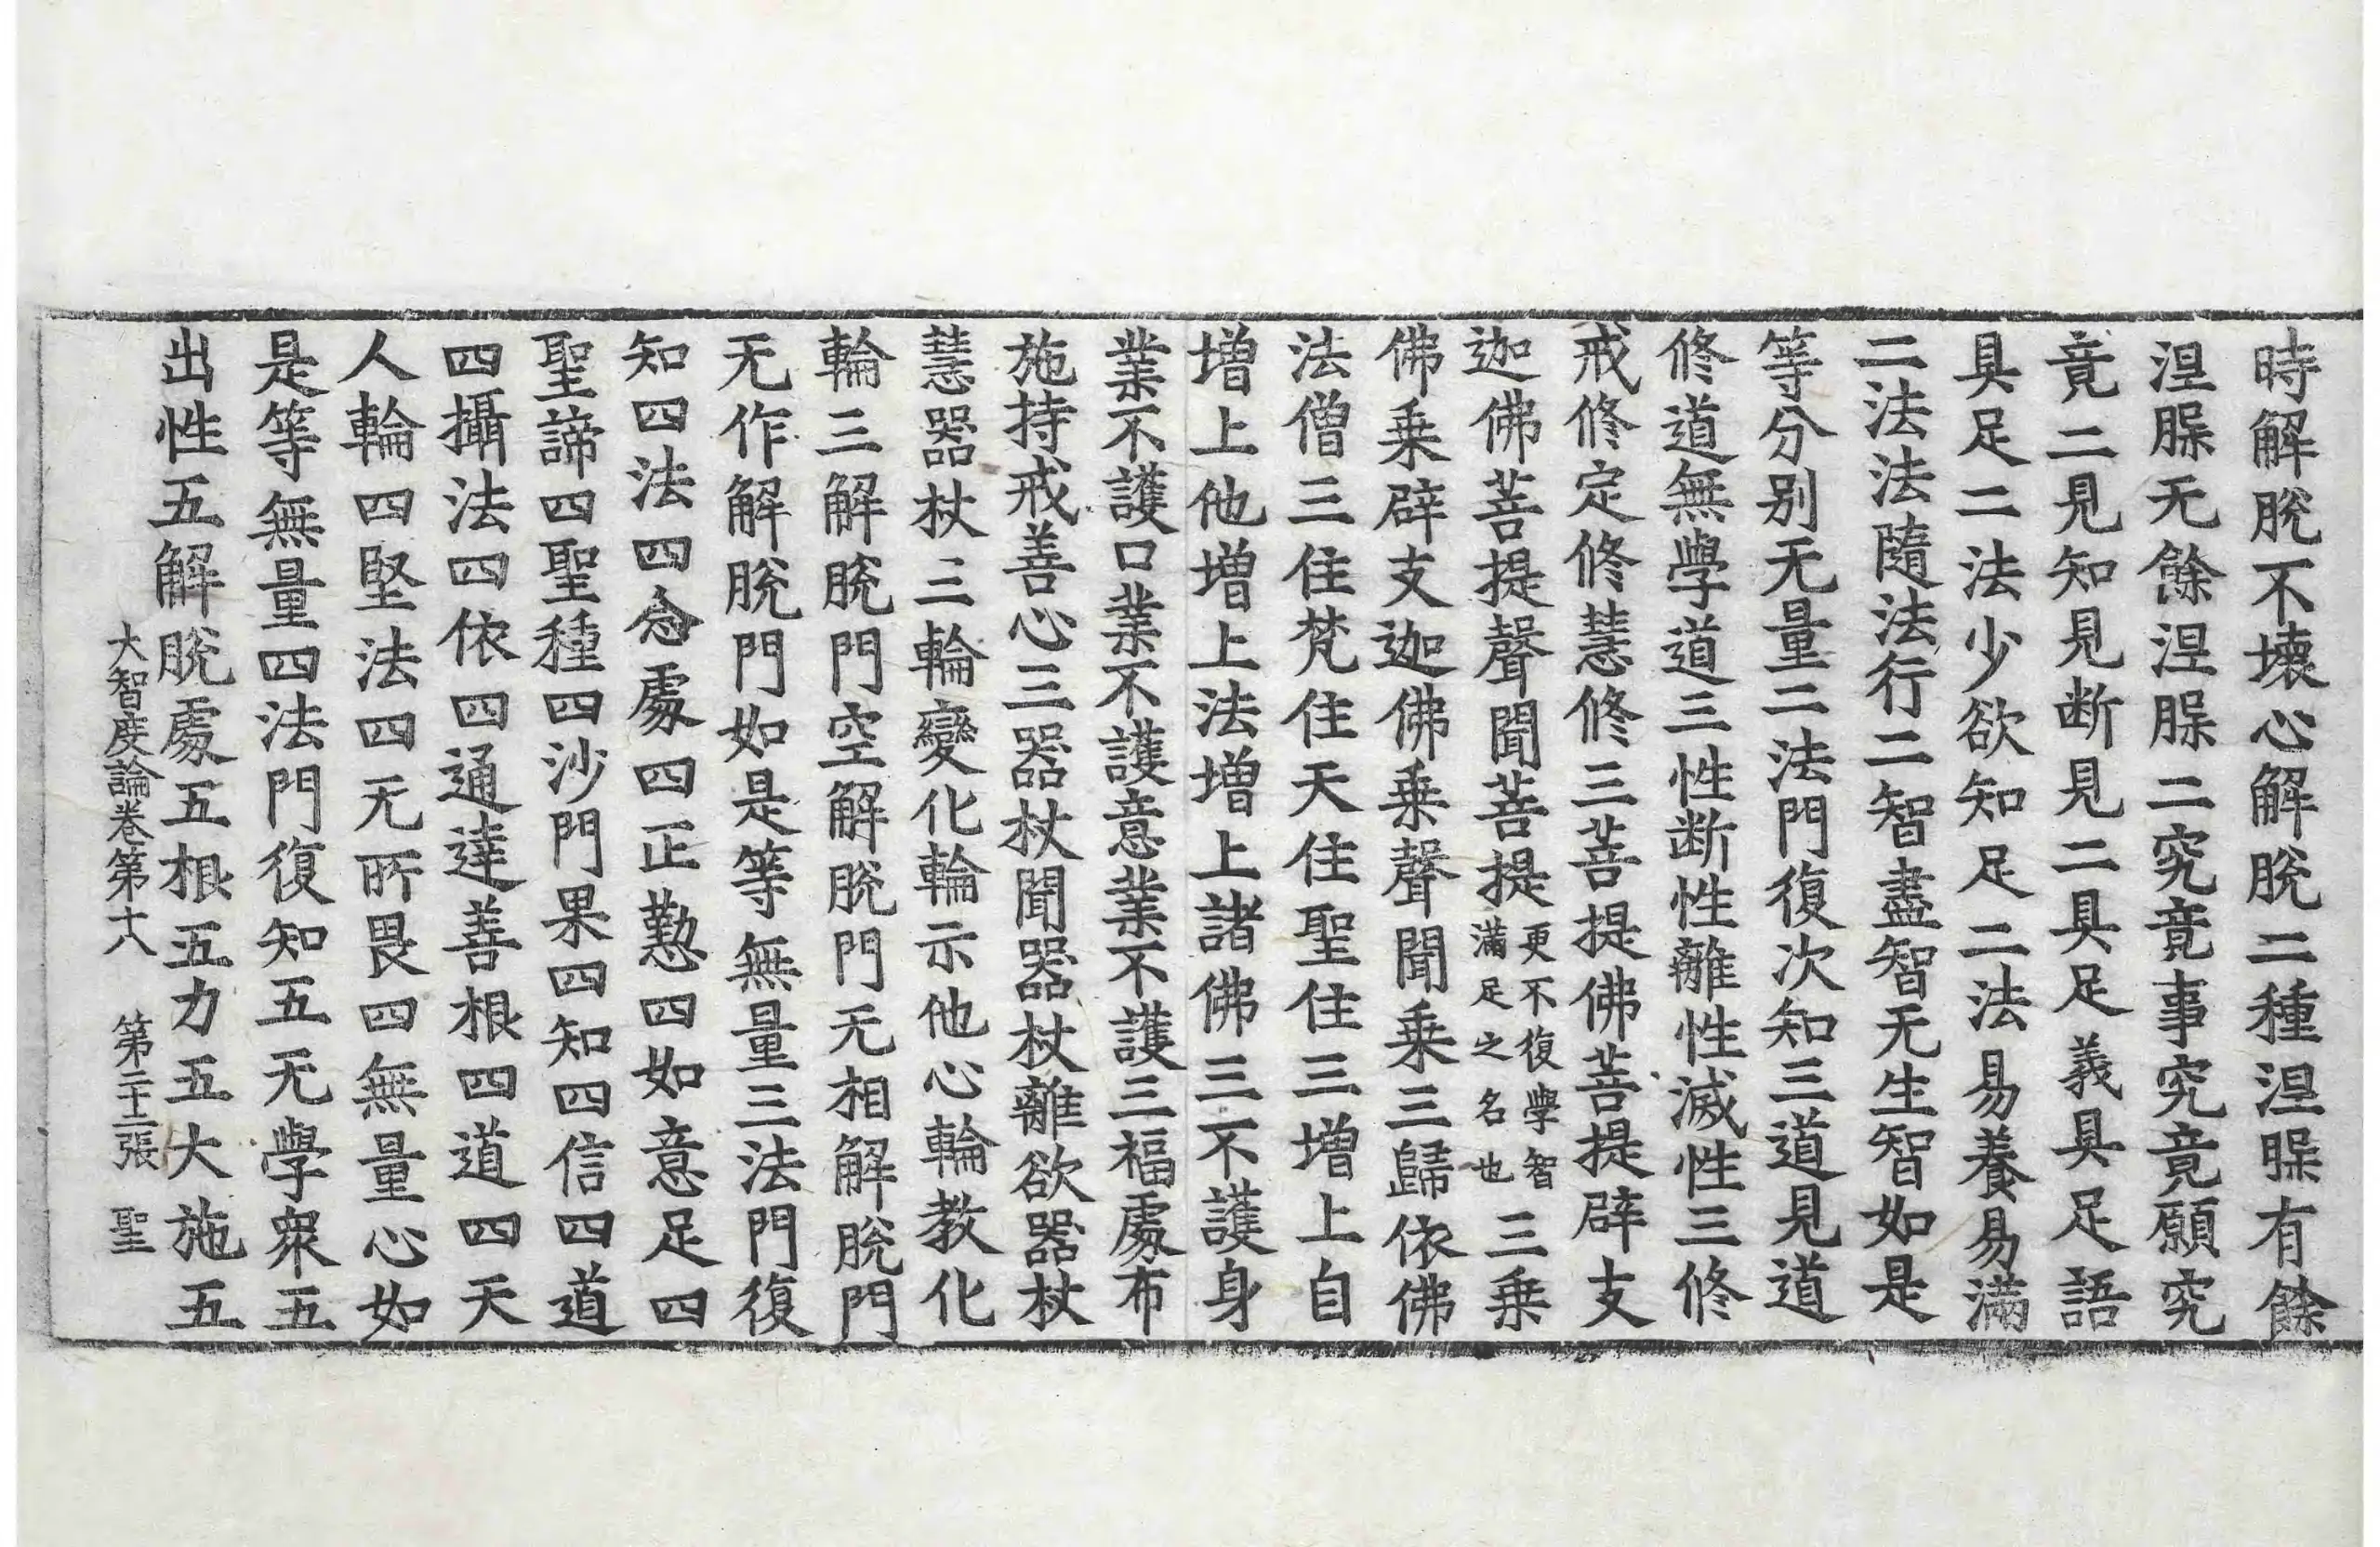 時解脫不壞心解脫二種涅槃有餘
涅槃无餘涅槃二究竟事究竟願究
竟二見知見断見二具足義具足語
具足二法少欲知足二法易養易滿
二法法隨法行二智盡智无生智如是
等分別无量二法門復次知三道見道
修道無學道三性断性離性滅性三修
戒修定修慧修三菩提佛菩提辟支
迦佛菩提聲聞菩提更不復學智滿足之名也三乗
佛乗辟支迦佛乗聲聞乗三歸依佛
法僧三住梵住天住聖住三増上自
増上他増上法増上諸佛三不護身
業不護口業不護意業不護三福處布
施持戒善心三器杖聞器杖離欲器杖
慧器杖三輪變化輪示他心輪教化
輪三解脫門空解脫門无相解脫門
无作解脫門如是等無量三法門復
知四法四念處四正懃四如意足四
聖諦四聖種四沙門果四知四信四道
四攝法四依四通達善根四道四天
人輪四堅法四无所畏四無量心如
是等無量四法門復知五无學衆五
出性五解脫處五根五力五大施五
大智度論卷第十八 第二十二張 聖